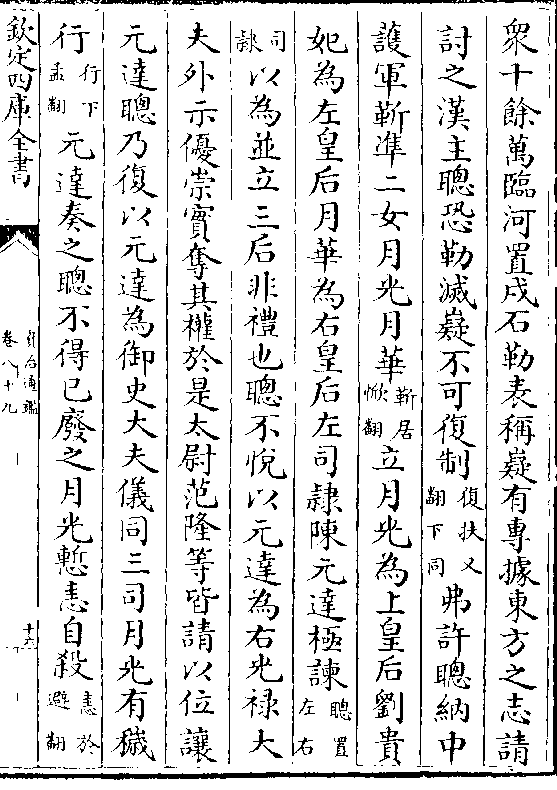 衆十餘萬臨河置戍石勒表稱嶷有專據東方之志請
討之漢主聰恐勒滅嶷不可復制復扶又翻下同弗許聰納中
護軍靳準二女月光月華靳居惞翻立月光為上皇后劉貴
妃為左皇后月華為右皇后左司隸陳元達極諫聰置左右
司隸以為並立三后非禮也聰不悅以元達為右光祿大
夫外示優崇實奪其權於是太尉范隆等皆請以位讓
元達聰乃復以元達為御史大夫儀同三司月光有穢
行行下孟翻元達奏之聰不得已廢之月光慙恚自殺恚於避翻
欽定四庫全書
資治通鑑
卷八十九
十六